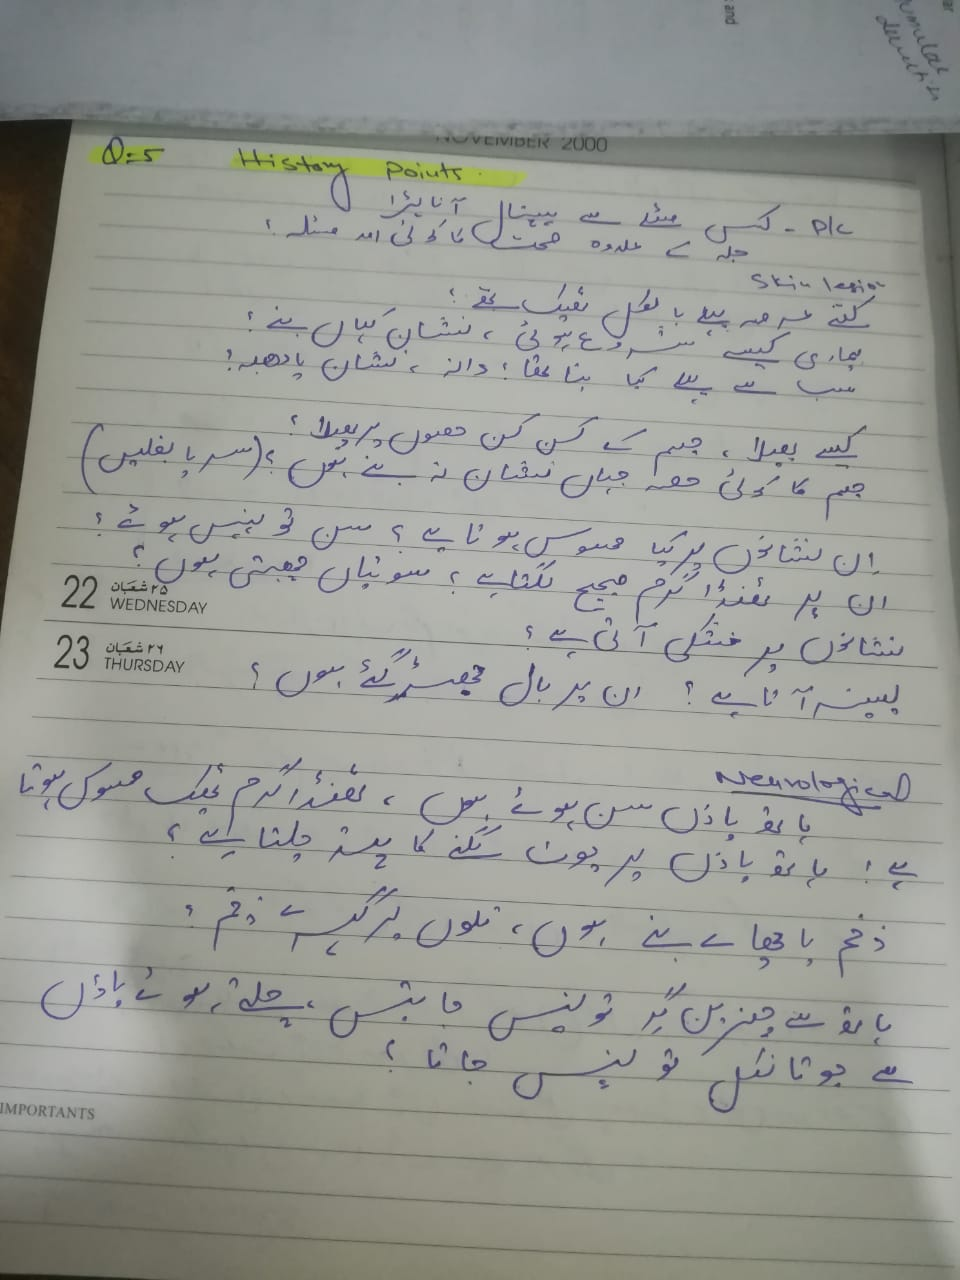 and
NOVEMBER 2000
Q:5 History Points.
P/C - کس مسئلے سے ہسپتال آنا پڑا
جلد کے علاوہ صحت کا کوئی اور مسئلہ؟
Skin lesion
کتنے عرصہ پہلے بالکل ٹھیک تھے؟
بیماری کیسے شروع ہوئی، نشان کہاں بنے؟
سب سے پہلے کیا بنا تھا؟ دانہ، نشان یا دھبہ؟
کیسے پھیلا، جسم کے کن کن حصوں پر پھیلا؟
جسم کا کوئی حصہ جہاں نشان نہ بنے ہوں؟ (سر یا بغلیں)
ان نشانوں پر کیا محسوس ہوتا ہے؟ سن تو نہیں ہوئے؟
ان پر ٹھنڈا گرم صحیح لگتا ہے، سوئیاں چبھتی ہوں؟
22 ۲۵ شعبان
WEDNESDAY
نشانوں پر خشکی آتی ہے؟
23 ۲۶ شعبان
THURSDAY
پسینہ آتا ہے؟ ان پر بال جھڑ گئے ہوں؟
Neurological
ہاتھ پاؤں سن ہوئے ہوں، ٹھنڈا گرم ٹھیک محسوس ہوتا
ہے؟ ہاتھ پاؤں پر چوٹ لگنے کا پتہ چلتا ہے؟
زخم یا چھالے بنے ہوں، تلوں پر گہرے زخم؟
ہاتھ سے چیزیں گر تو نہیں جاتیں، چلتے ہوئے پاؤں
سے جوتا نکل تو نہیں جاتا؟
IMPORTANTS